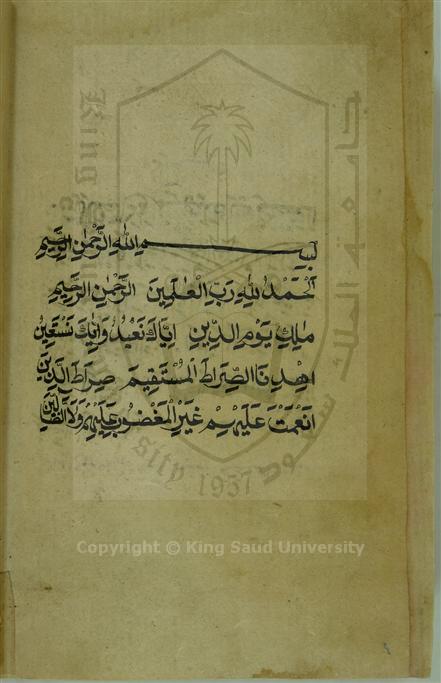 بِسْمِ اللهِ الرَّحْمٰنِ الرَّحِيْمِ
اَلْحَمْدُ لِلهِ رَبِّ الْعٰلَمِيْنَ الرَّحْمٰنِ الرَّحِيْمِ
مٰلِكِ يَوْمِ الدِّيْنِ اِيَّاكَ نَعْبُدُ وَاِيَّاكَ نَسْتَعِيْنُ
اهْدِنَا الصِّرَاطَ الْمُسْتَقِيْمَ صِرَاطَ الَّذِيْنَ
اَنْعَمْتَ عَلَيْهِمْ غَيْرِ الْمَغْضُوْبِ عَلَيْهِمْ وَلَا الضَّالِّيْنَ
King
جامعة الملك سعود
sity 1957
Copyright © King Saud University